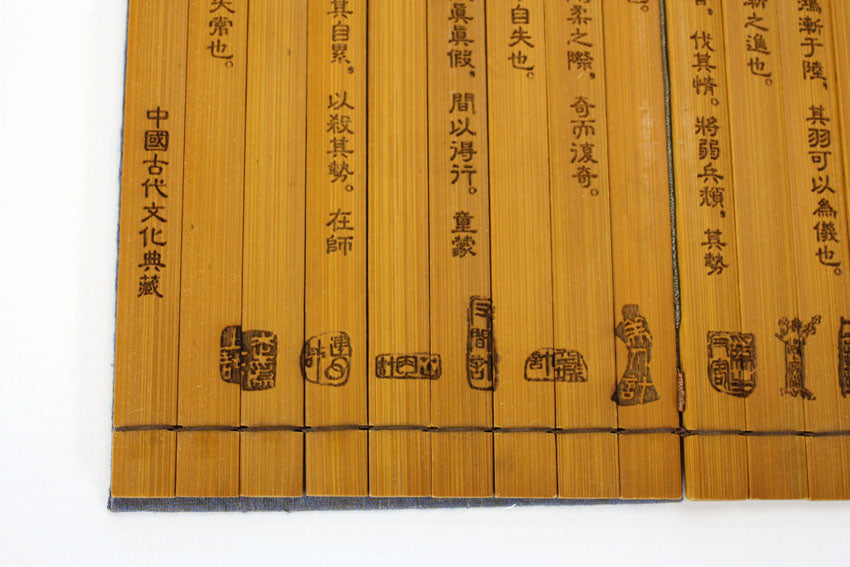 鴻漸于陸,其羽可以為儀也。
漸之進也。
伐其情。將弱兵頹,其勢
柔之際,奇而復奇。
自失也。
真真假,間以得行。童蒙
其自累,以殺其勢。在師
失常也。
中國古代文化典藏
美人計
反間計